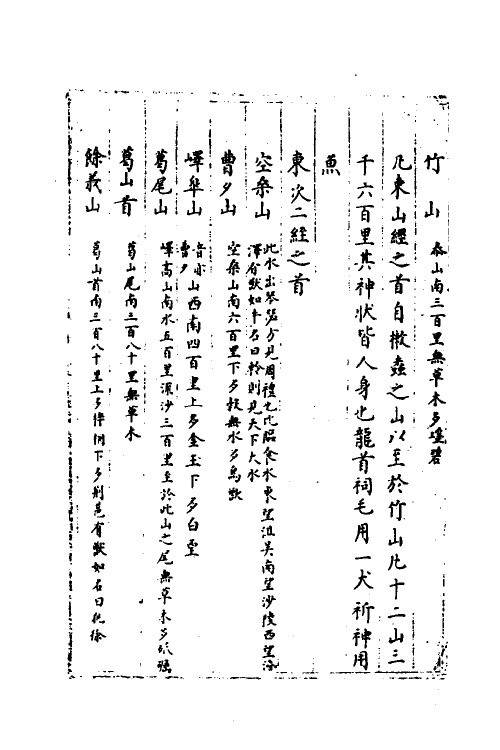 竹山　泰山南三百里無草木多瑤碧
凡東山經之首自樕䗤之山以至於竹山凡十二山三
千六百里其神狀皆人身也龍首祠毛用一犬祈神用
魚
東次二經之首
空桑山　此水出琴瑟方見周禮也北臨食水東望沮吳南望沙陵西望
澤有獸如牛名曰軨則見天下大水
曹夕山　空桑山南六百里下多榖無水多鳥獸
嶧皐山　山西南四百里上多金玉下多白堊
葛尾山　嶧高山南水五百里流沙三百里至於此山之尾無草木多砥礪
葛山首　葛山尾南三百八十里無草木
餘峩山　葛山首南三百八十里上多梓枏下多荆芑有獸如名曰犰狳